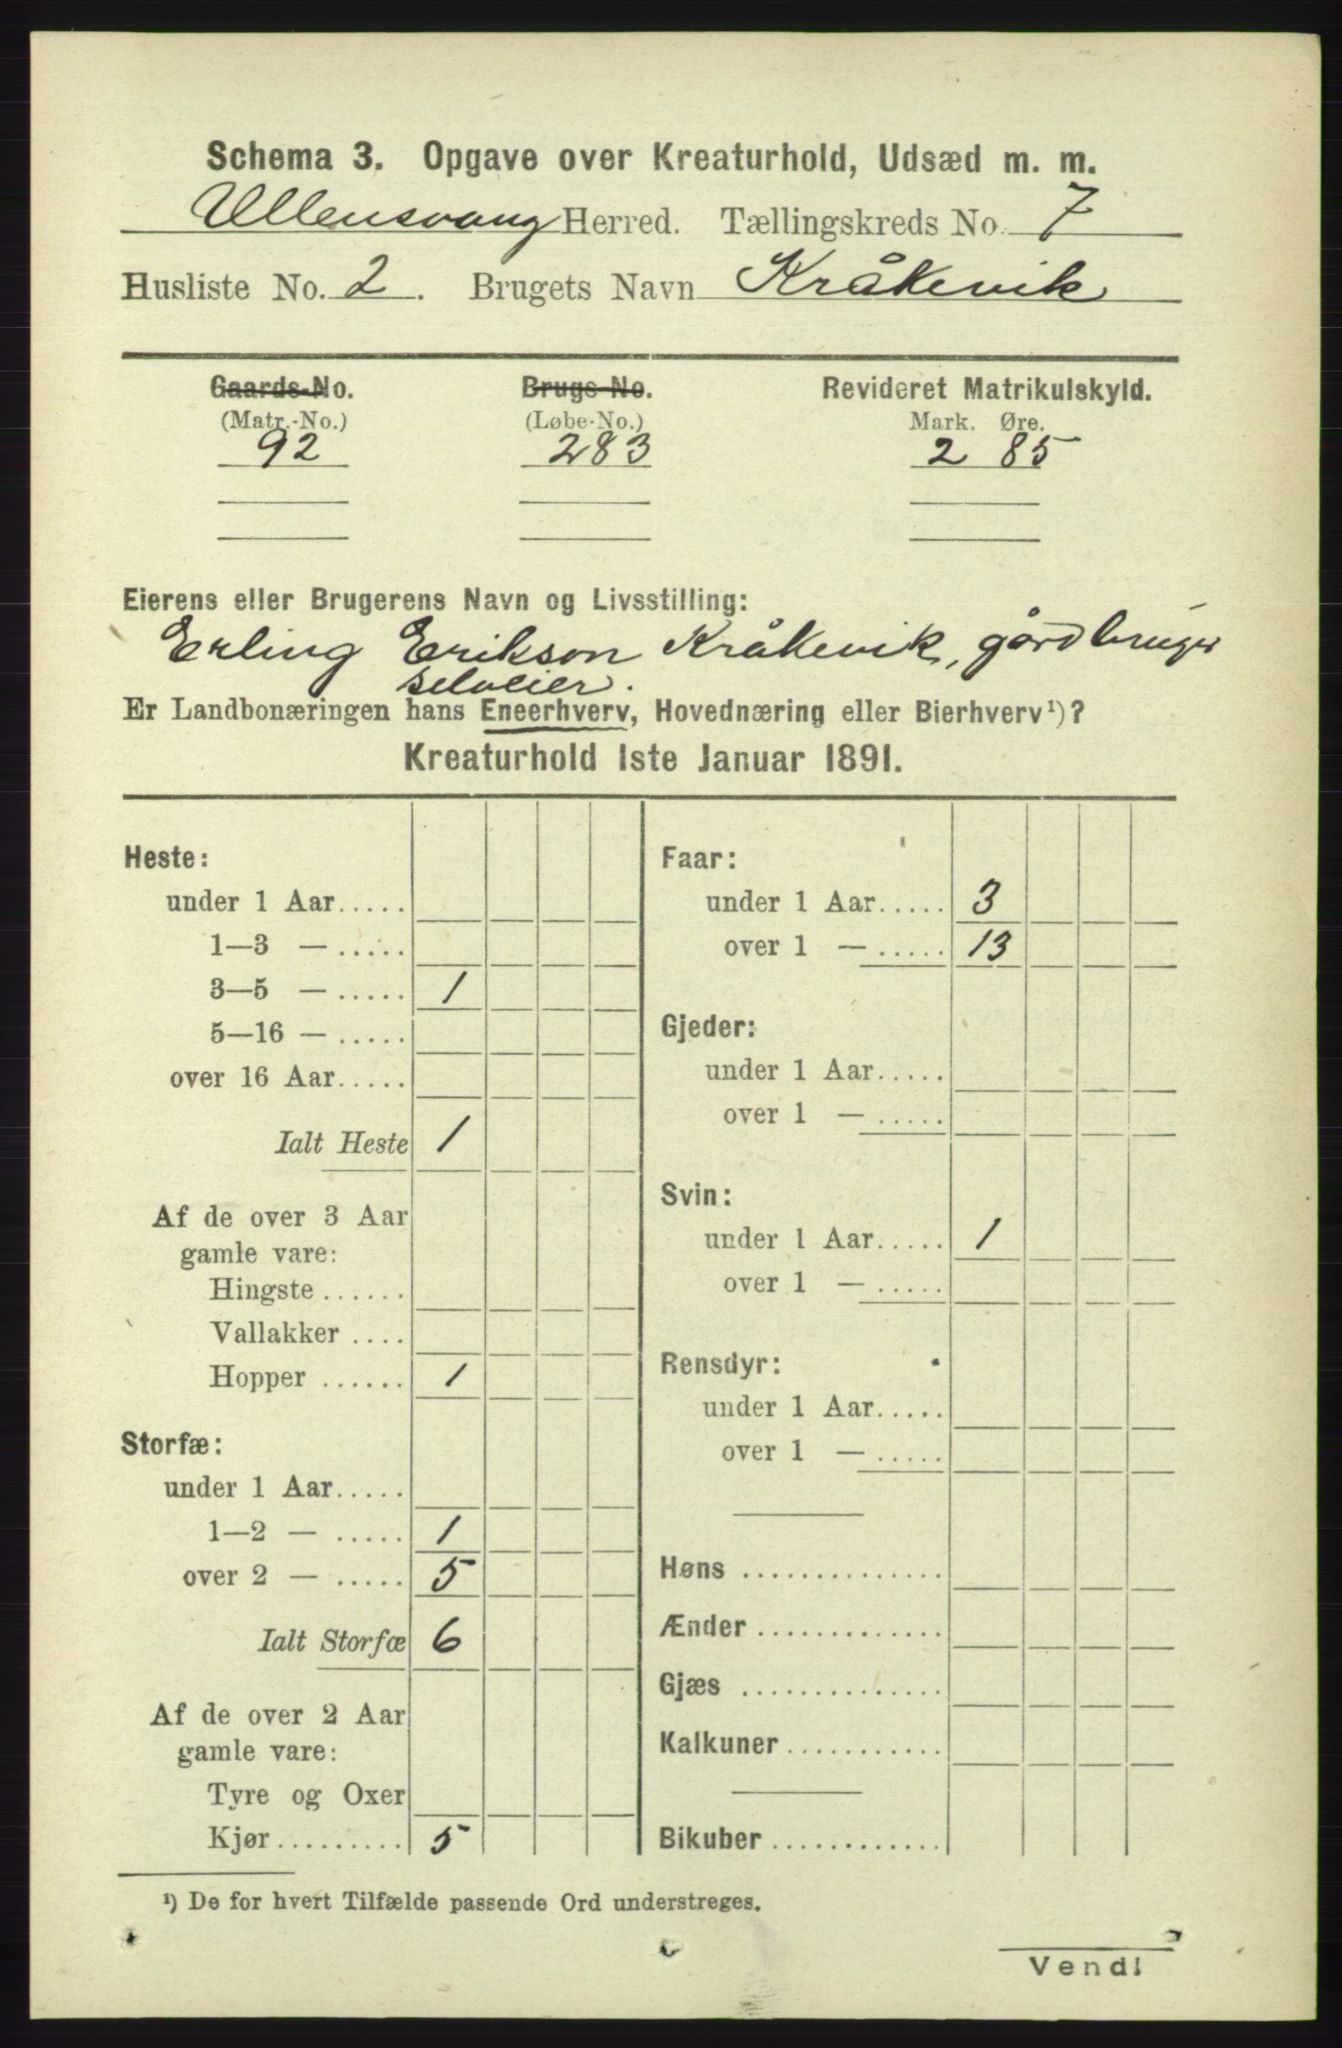 Schema 3. Opgave over Kreaturhold, Udsæd m. m.
Ullensvang Herred. Tællingskreds No. 7
Husliste No. 2. Brugets Navn Kråkevik
Gaards-No. Brugs-No. Revideret Matrikulskyld.
(Matr.-No.) (Løbe-No.) Mark. Øre.
92 283 2 85
Eierens eller Brugerens Navn og Livsstilling:
Erling Erikson Kråkevik, gårdbruger
selveier.
Er Landbonæringen hans Eneerhverv, Hovednæring eller Bierhverv¹)?
Kreaturhold 1ste Januar 1891.
Heste:
under 1 Aar.....
1—3 — .....
3—5 — ..... 1
5—16 — .....
over 16 Aar.....
Ialt Heste 1
Af de over 3 Aar
gamle vare:
Hingste ......
Vallakker ....
Hopper ...... 1
Storfæ:
under 1 Aar.....
1—2 — ..... 1
over 2 — ..... 5
Ialt Storfæ 6
Af de over 2 Aar
gamle vare:
Tyre og Oxer
Kjør......... 5
Faar:
under 1 Aar..... 3
over 1 — ..... 13
Gjeder:
under 1 Aar.....
over 1 — .....
Svin:
under 1 Aar..... 1
over 1 — .....
Rensdyr:
under 1 Aar.....
over 1 — .....
Høns ..............
Ænder .............
Gjæs ..............
Kalkuner ...........
Bikuber ............
¹) De for hvert Tilfælde passende Ord understreges.
Vend!